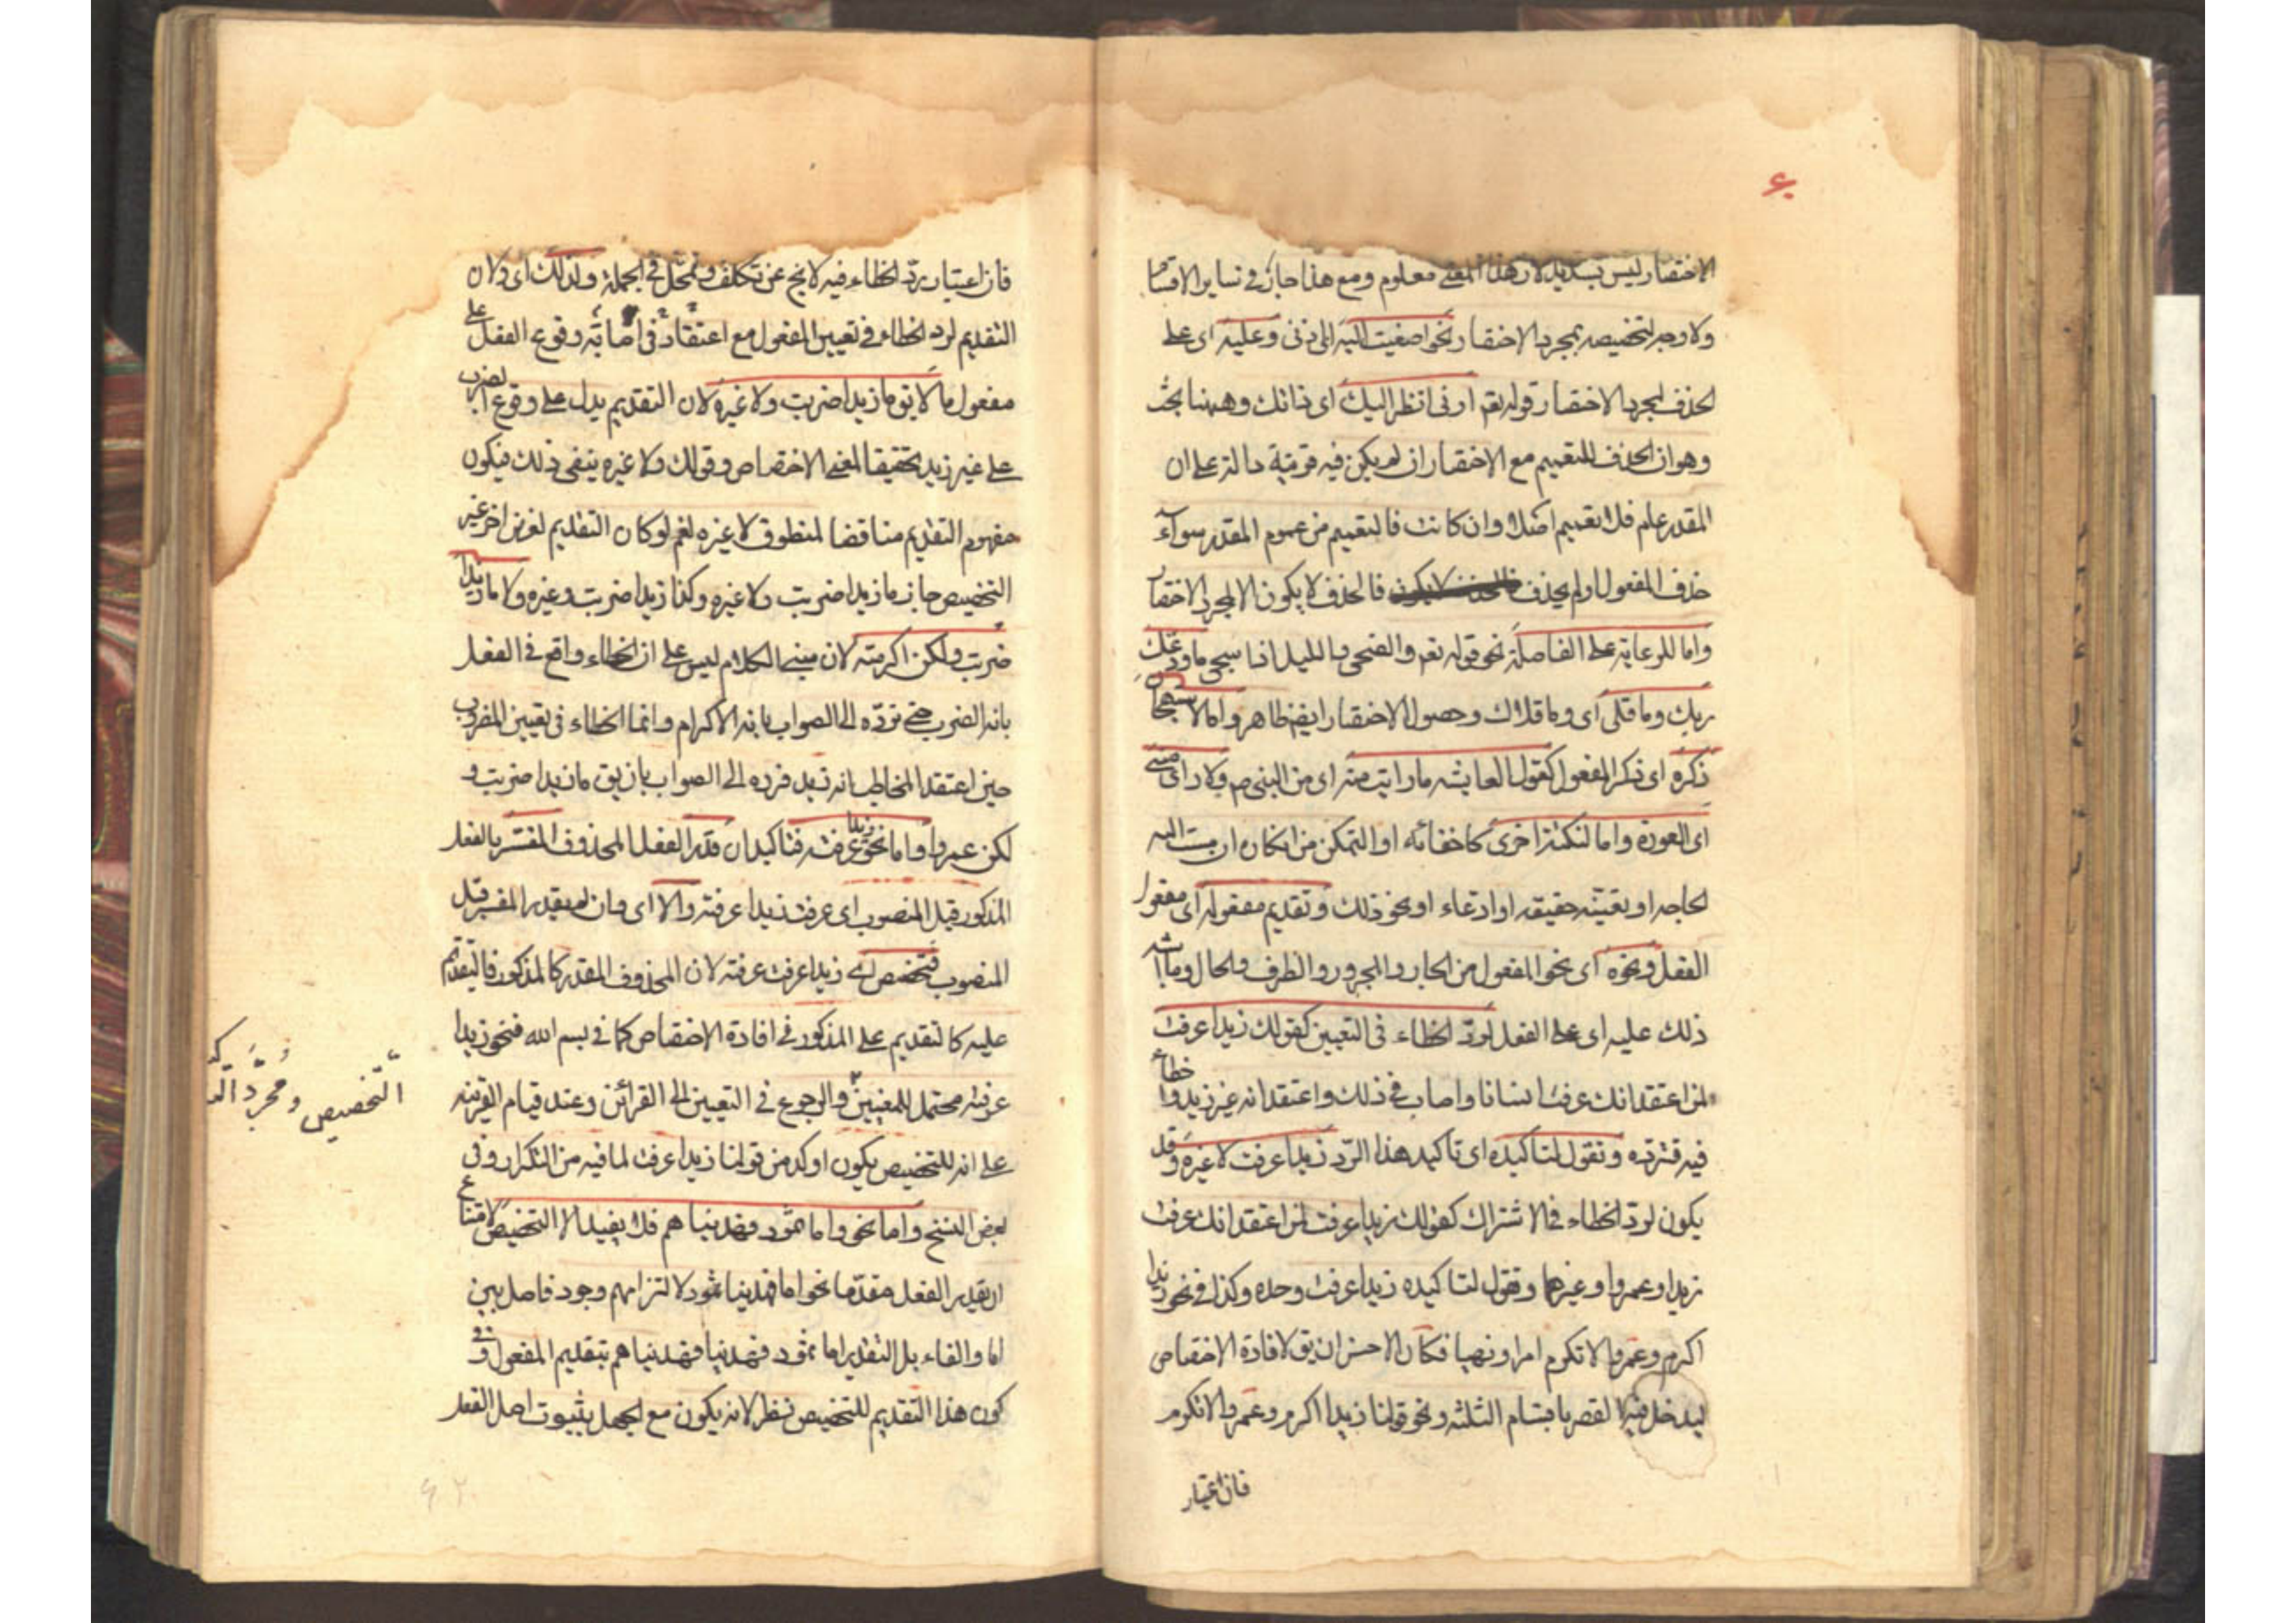 الاختصار ليس بسديد لان هذا المعنى معلوم ومع هذا جاز في ساير الاقسام
ولا وجه لتخصيصه بمجرد الاختصار نحو اصغيت اليه اى اذنى وعليه اى على
الحذف لمجرد الاختصار قوله تعم ارنى انظر اليك اى ذاتك وههنا بحث
وهو ان الحذف للتعميم مع الاختصار ان لم يكن فيه قرينة دالة على ان
المقدر عام فلا تعميم اصلا وان كانت فالتعميم من عموم المقدر سواء
حذف المفعول او لم يحذف فالحذف لا يكون الا لمجرد الاختصار
واما للرعاية على الفاصلة نحو قوله تعم والضحى والليل اذا سجى ما ودعك
ربك وما قلى اى وما قلاك وحصول الاختصار ايض ظاهر واما لاستهجان
ذكره اى ذكر المفعول كقول عايشه ما رايت منه اى من النبى ص ولا راى منى
اى العورة واما لنكتة اخرى كاخفائه او التمكن من انكاره ان مست اليه
الحاجه او تعينه حقيقه او ادعاء او نحو ذلك وتقديم مفعوله اى مفعول
الفعل ونحوه اى نحو المفعول من الجار والمجرور والظرف والحال وما اشبه
ذلك عليه اى على الفعل لرد الخطاء فى التعيين كقولك زيدا عرفت
لمن اعتقد انك عرفت انسانا واصاب فى ذلك واعتقد انه غير زيد واخطاء
فيه فترده وتقول لتاكيده اى تاكيد هذا الرد زيدا عرفت لا غيره وقد
يكون لرد الخطاء فى الاشتراك كقولك زيدا عرفت لمن اعتقد انك عرفت
زيدا وعمروا وغيرهما وتقول لتاكيده زيدا عرفت وحده وكذا فى نحو زيدا
اكرم وعمروا لا تكرم امرا ونهيا فكان الاحسن ان يق لافادة الاختصاص
ليدخل فيه القصر باقسام الثلثه ونحو قولنا زيدا اكرم وعمروا لا تكرم
فان اعتبار
فان اعتبار رد الخطاء فيه لا يخ عن تكلف وتمحل فى الجملة ولذلك اى ولان
التقديم لرد الخطاء فى تعيين المفعول مع اعتقاد فى اصابته وقوع الفعل على
مفعول ما لا يق ما زيدا ضربت ولا غيره لان التقديم يدل على وقوع الضرب
على غير زيد تحقيقا لمعنى الاختصاص وقولك ولا غيره ينفى ذلك فيكون
مفهوم التقديم مناقضا لمنطوق لا غيره نعم لو كان التقديم لغرض اخر غير
التخصيص جاز ما زيدا ضربت ولا غيره وكذا زيدا ضربت وغيره ولا ما زيدا
ضربت ولكن اكرمته لان مبنى الكلام ليس على ان الخطاء واقع فى الفعل
بانه الضرب حتى ترده الى الصواب بانه الاكرام وانما الخطاء فى تعيين المضروب
حين اعتقد المخاطب انه زيد فرده الى الصواب بان يق ما زيدا ضربت و
لكن عمروا واما نحو زيدا عرفته فتاكيد ان قدر الفعل المحذوف المفسر بالفعل
المذكور قبل المنصوب اى عرفت زيدا عرفته والا اى وان لم يقدر المفسر قبل
المنصوب فتخصيص اى زيدا عرفت عرفته لان المحذوف المقدر كالمذكور فالتقديم
عليه كالتقديم على المذكور فى افادة الاختصاص كما فى بسم الله فنحو زيدا
عرفته محتمل للمعنيين والرجوع فى التعيين الى القرائن وعند قيام القرينه
على انه للتخصيص يكون اوكد من قولنا زيدا عرفت لما فيه من التكرار وفى
بعض النسخ واما نحو واما ثمود فهديناهم فلا يفيد الا التخصيص لامتناع
ان يقدر الفعل مقدما نحو اما فهدينا ثمود لالتزامهم وجود فاصل بين
اما والفاء بل التقدير اما ثمود فهدينا فهديناهم بتقديم المفعول وفى
كون هذا التقديم للتخصيص نظر لانه يكون مع الجهل بثبوت اصل الفعل
التخصيص ومجرد